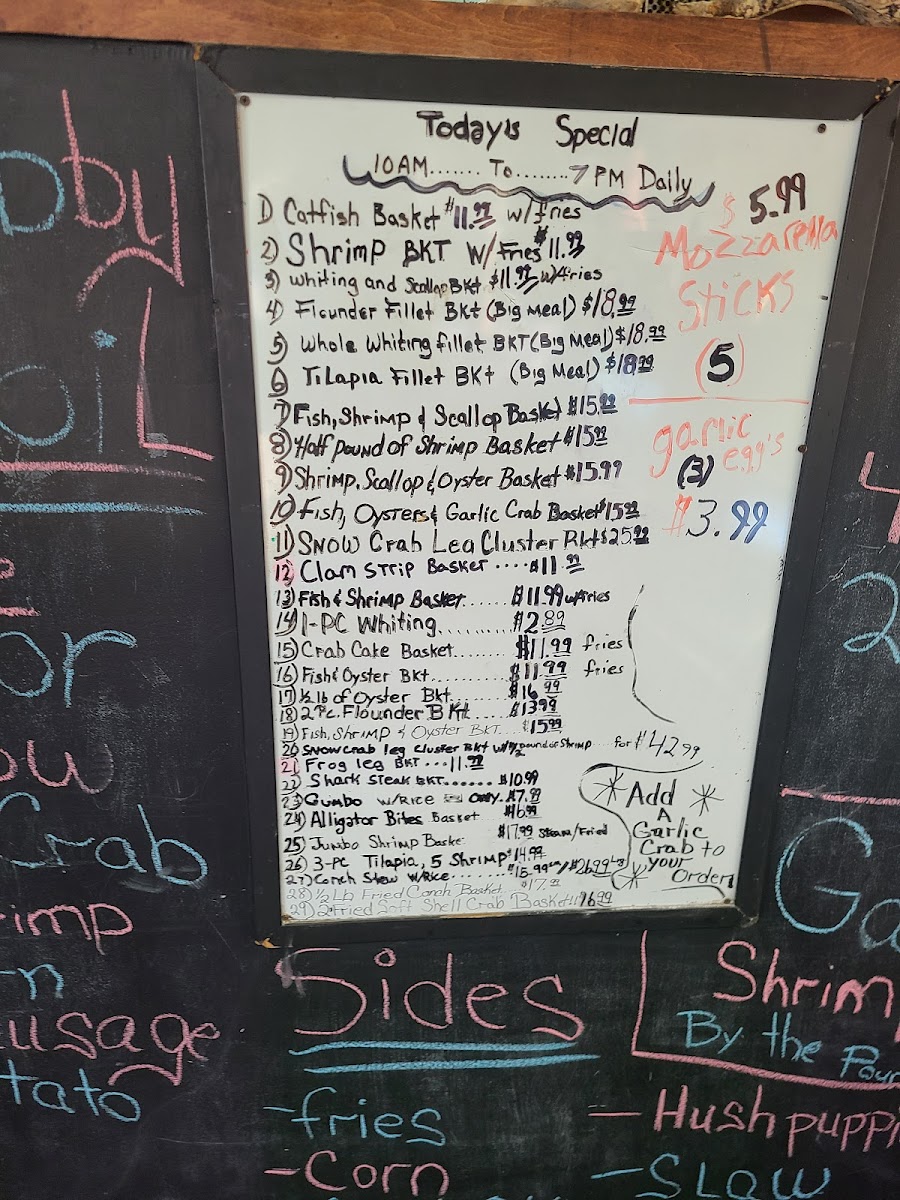 Today's Special
10AM....... To........7 PM Daily
1) Catfish Basket $11.99 w/fries
2) Shrimp BKT W/ Fries $11.99
3) whiting and Scallop BKt $11.99 w/fries
4) Flounder Fillet BKt (Big Meal) $18.99
5) Whole Whiting fillet BKT (Big Meal) $18.99
6) TiLapia Fillet BKt (Big Meal) $18.99
7) Fish, Shrimp & Scallop Basket $15.99
8) Half pound of Shrimp Basket $15.99
9) Shrimp, Scallop & Oyster Basket $15.99
10) Fish, Oysters & Garlic Crab Basket $15.99
11) Snow Crab Leg Cluster Bkt $25.99
12) Clam Strip Basket .... $11.99
13) Fish & Shrimp Basket...... $11.99 w/fries
14) 1-PC Whiting......... $2.89
15) Crab Cake Basket........ $11.99 fries
16) Fish & Oyster BKT........... $11.99 fries
17) ½ lb of Oyster BKt..... $16.99
18) 2 Pc. Flounder BKt.... $13.99
19) Fish, Shrimp & Oyster BKT.... $15.99
20) Snow crab leg Cluster BKt w/ 1/2 pound of Shrimp ... for $42.99
21) Frog leg BKT ... 11.99
22) Shark Steak BKT...... $10.99
23) Gumbo w/RICE only. $7.99
24) Alligator Bites Basket $16.99
25) Jumbo Shrimp Basket $17.99 Steam/Fried
26) 3-PC Tilapia, 5 Shrimp $14.99
27) Conch Stew W/Rice........ $15.99 sm/ $26.99 Lg
28) ½ Lb Fried Conch Basket $17.99
29) 2 Fried Soft Shell Crab Basket $16.99
$5.99
Mozzarella
Sticks
(5)
garlic
egg's
(3)
$3.99
Add
A
Garlic
Crab to
your
Order
Sides
-fries
-Corn
Shrim
By the Pour
- Hushpuppi
- SLaw
Ga
2
bby
oiL
or
ow
Crab
rimp
rn
usage
tato